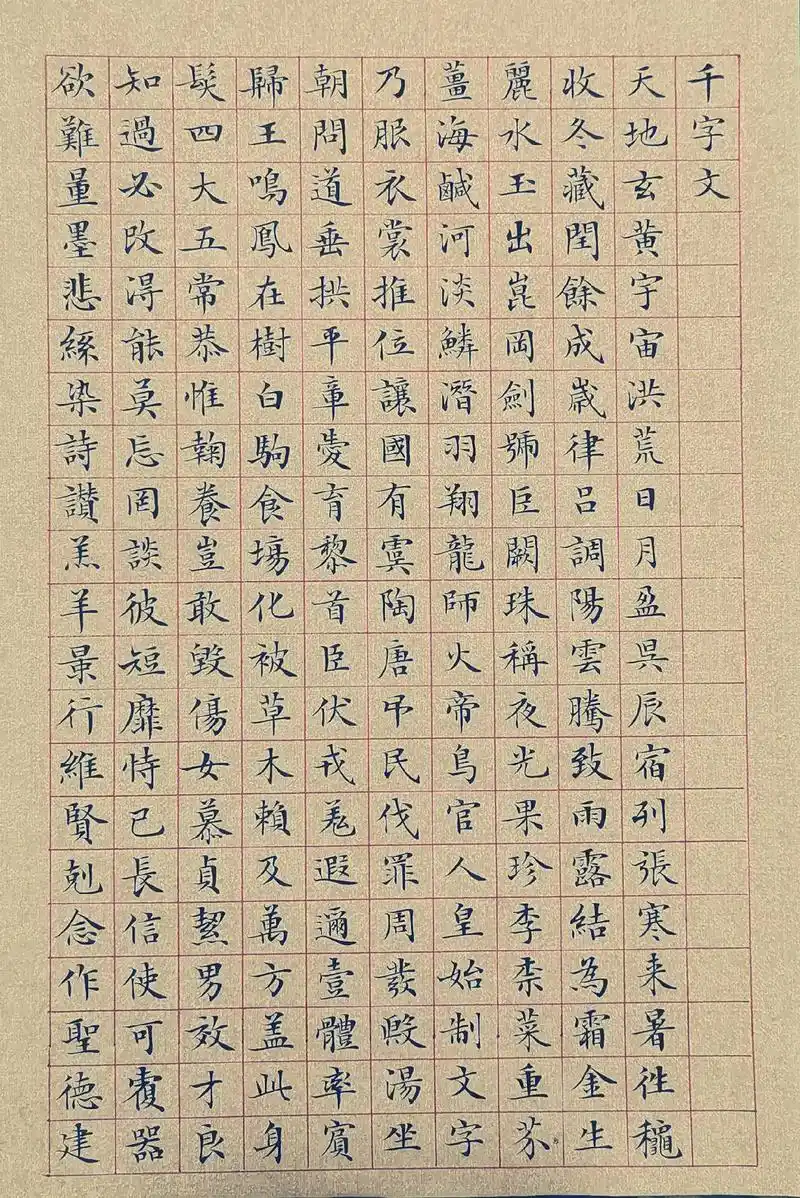 千字文
天地玄黄宇宙洪荒日月盈昃辰宿列張寒来暑往穐
收冬藏閏餘成歲律吕調陽雲騰致雨露結為霜金生
麗水玉出崑岡劍號巨闕珠稱夜光果珍李柰菜重芥
薑海鹹河淡鱗潛羽翔龍師火帝鳥官人皇始制文字
乃服衣裳推位讓國有虞陶唐弔民伐罪周發殷湯坐
朝問道垂拱平章愛育黎首臣伏戎羌遐邇壹體率賓
歸王鳴鳳在樹白駒食場化被草木賴及萬方盖此身
髮四大五常恭惟鞠養豈敢毀傷女慕貞絜男效才良
知過必改得能莫忘罔談彼短靡恃己長信使可覆器
欲難量墨悲絲染詩讃羔羊景行維賢剋念作聖德建